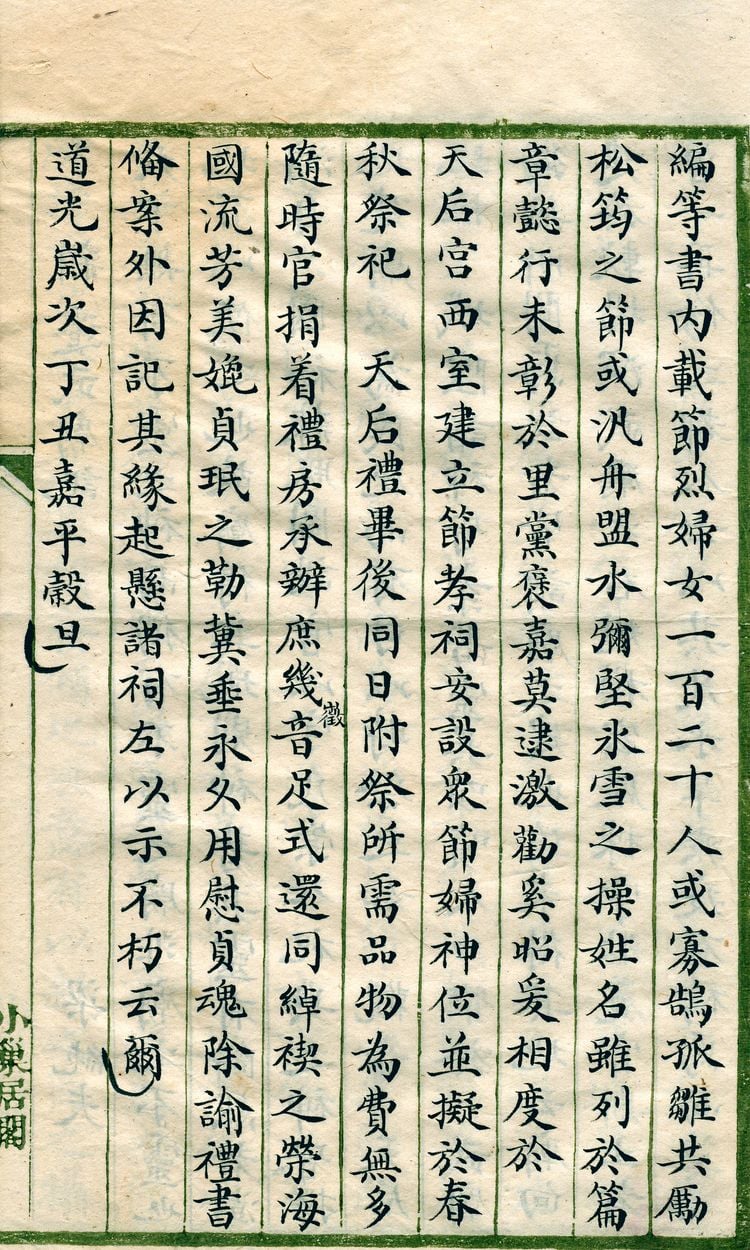 編等書内載節烈婦女一百二十人或寡鵠孤雛共勵
松筠之節或汎舟盟水彌堅氷雪之操姓名雖列於篇
章懿行未彰於里黨襃嘉莫逮激勸奚昭爰相度於
天后宫西室建立節孝祠安設衆節婦神位並擬於春
秋祭祀　天后禮畢後同日附祭所需品物為費無多
隨時官捐着禮房承辦庶幾徽音足式還同綽禊之榮海
國流芳美媲貞珉之勒冀垂永久用慰貞魂除諭禮書
俻案外因記其緣起懸諸祠左以示不朽云爾
道光歲次丁丑嘉平穀旦
小巢居閣